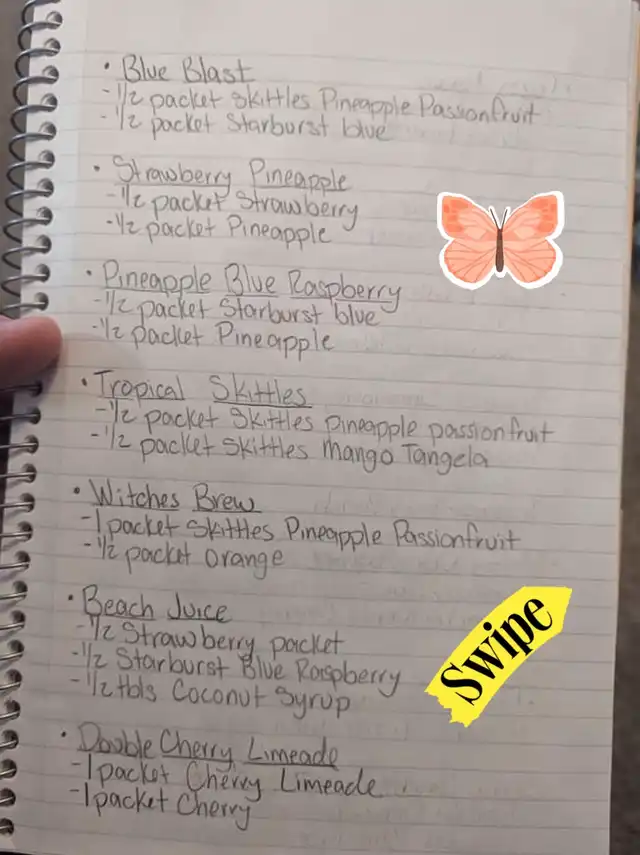 • Blue Blast
- 1/2 packet Skittles Pineapple Passionfruit
- 1/2 packet Starburst blue
• Strawberry Pineapple
- 1/2 packet Strawberry
- 1/2 packet Pineapple
• Pineapple Blue Raspberry
- 1/2 packet Starburst blue
- 1/2 packet Pineapple
• Tropical Skittles
- 1/2 packet Skittles pineapple passionfruit
- 1/2 packet Skittles Mango Tangela
• Witches Brew
- 1 packet Skittles Pineapple Passionfruit
- 1/2 packet orange
• Beach Juice
- 1/2 Strawberry packet
- 1/2 Starburst Blue Raspberry
- 1/2 tbls Coconut Syrup
Swipe
• Double Cherry Limeade
- 1 packet Cherry Limeade
- 1 packet Cherry